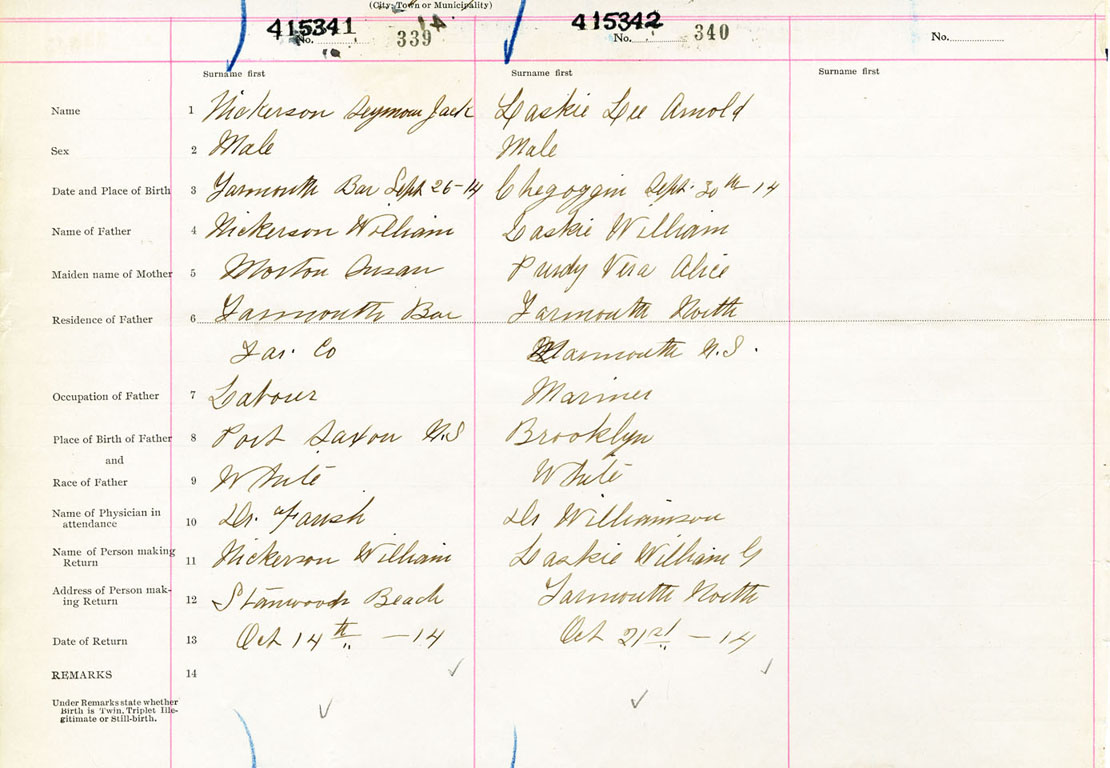 (City, Town or Municipality)
415341 14 415342
No. 339 No. 340 No.
Surname first Surname first Surname first
Name 1 Nickerson Seymour Jack Laskie Lee Arnold
Sex 2 Male Male
Date and Place of Birth 3 Yarmouth Bar Sept 26-14 Chegoggin Sept. 30th 14
Name of Father 4 Nickerson William Laskie William
Maiden name of Mother 5 Morton Susan Purdy Vera Alice
Residence of Father 6 Yarmouth Bar Yarmouth North
Yar. Co Yarmouth N.S.
Occupation of Father 7 Labour Mariner
Place of Birth of Father 8 Port Saxon N.S Brooklyn
and
Race of Father 9 White White
Name of Physician in attendance 10 Dr. Farish Dr Williamson
Name of Person making Return 11 Nickerson William Laskie William G
Address of Person mak-
ing Return 12 Stanwoods Beach Yarmouth North
Date of Return 13 Oct 14th -14 Oct 21st -14
REMARKS 14
Under Remarks state whether
Birth is Twin. Triplet Ille-
gitimate or Still-birth.